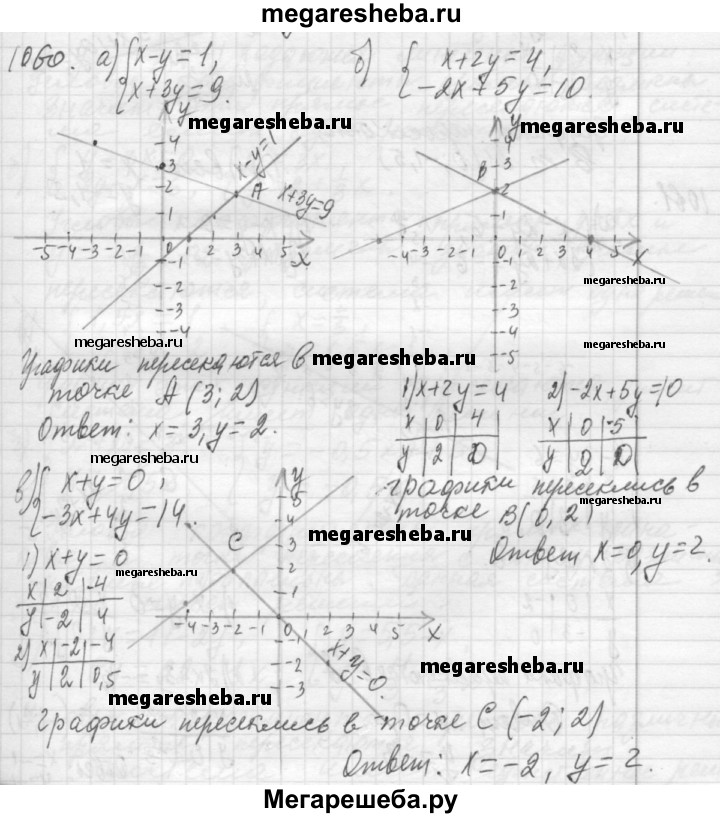 megaresheba.ru
1060. а) { x-y=1, б) { x+2y=4,
x+3y=9. -2x+5y=10.
megaresheba.ru
megaresheba.ru
y
4
3
2
1
-5 -4 -3 -2 -1 0 1 2 3 4 5 x
-1
-2
-3
-4
x-y=1
A
x+3y=9
y
4
3
2
1
B
-4 -3 -2 -1 0 1 2 3 4 5 x
-1
-2
-3
-5
megaresheba.ru
megaresheba.ru
Графики пересекаются в
точке A (3; 2)
Ответ: x=3, y=2.
megaresheba.ru
1) x+2y=4 2) -2x+5y=10
x | 0 | 4 x | 0 | -5
y | 2 | 0 y | 2 | 0
графики пересеклись в
точке B(0, 2)
megaresheba.ru
Ответ x=0, y=2.
в) { x+y=0,
-3x+4y=14.
1) x+y=0
x | 2 | -4
y | -2 | 4
2) x | -2 | -4
y | 2 | 0,5
megaresheba.ru
megaresheba.ru
megaresheba.ru
y
5
4
3
2
1
C
-4 -3 -2 -1 0 1 2 3 4 5 x
-1
-2
-3
x+y=0
megaresheba.ru
megaresheba.ru
графики пересеклись в точке C (-2; 2)
Ответ: x=-2, y=2.
Мегарешеба.ру